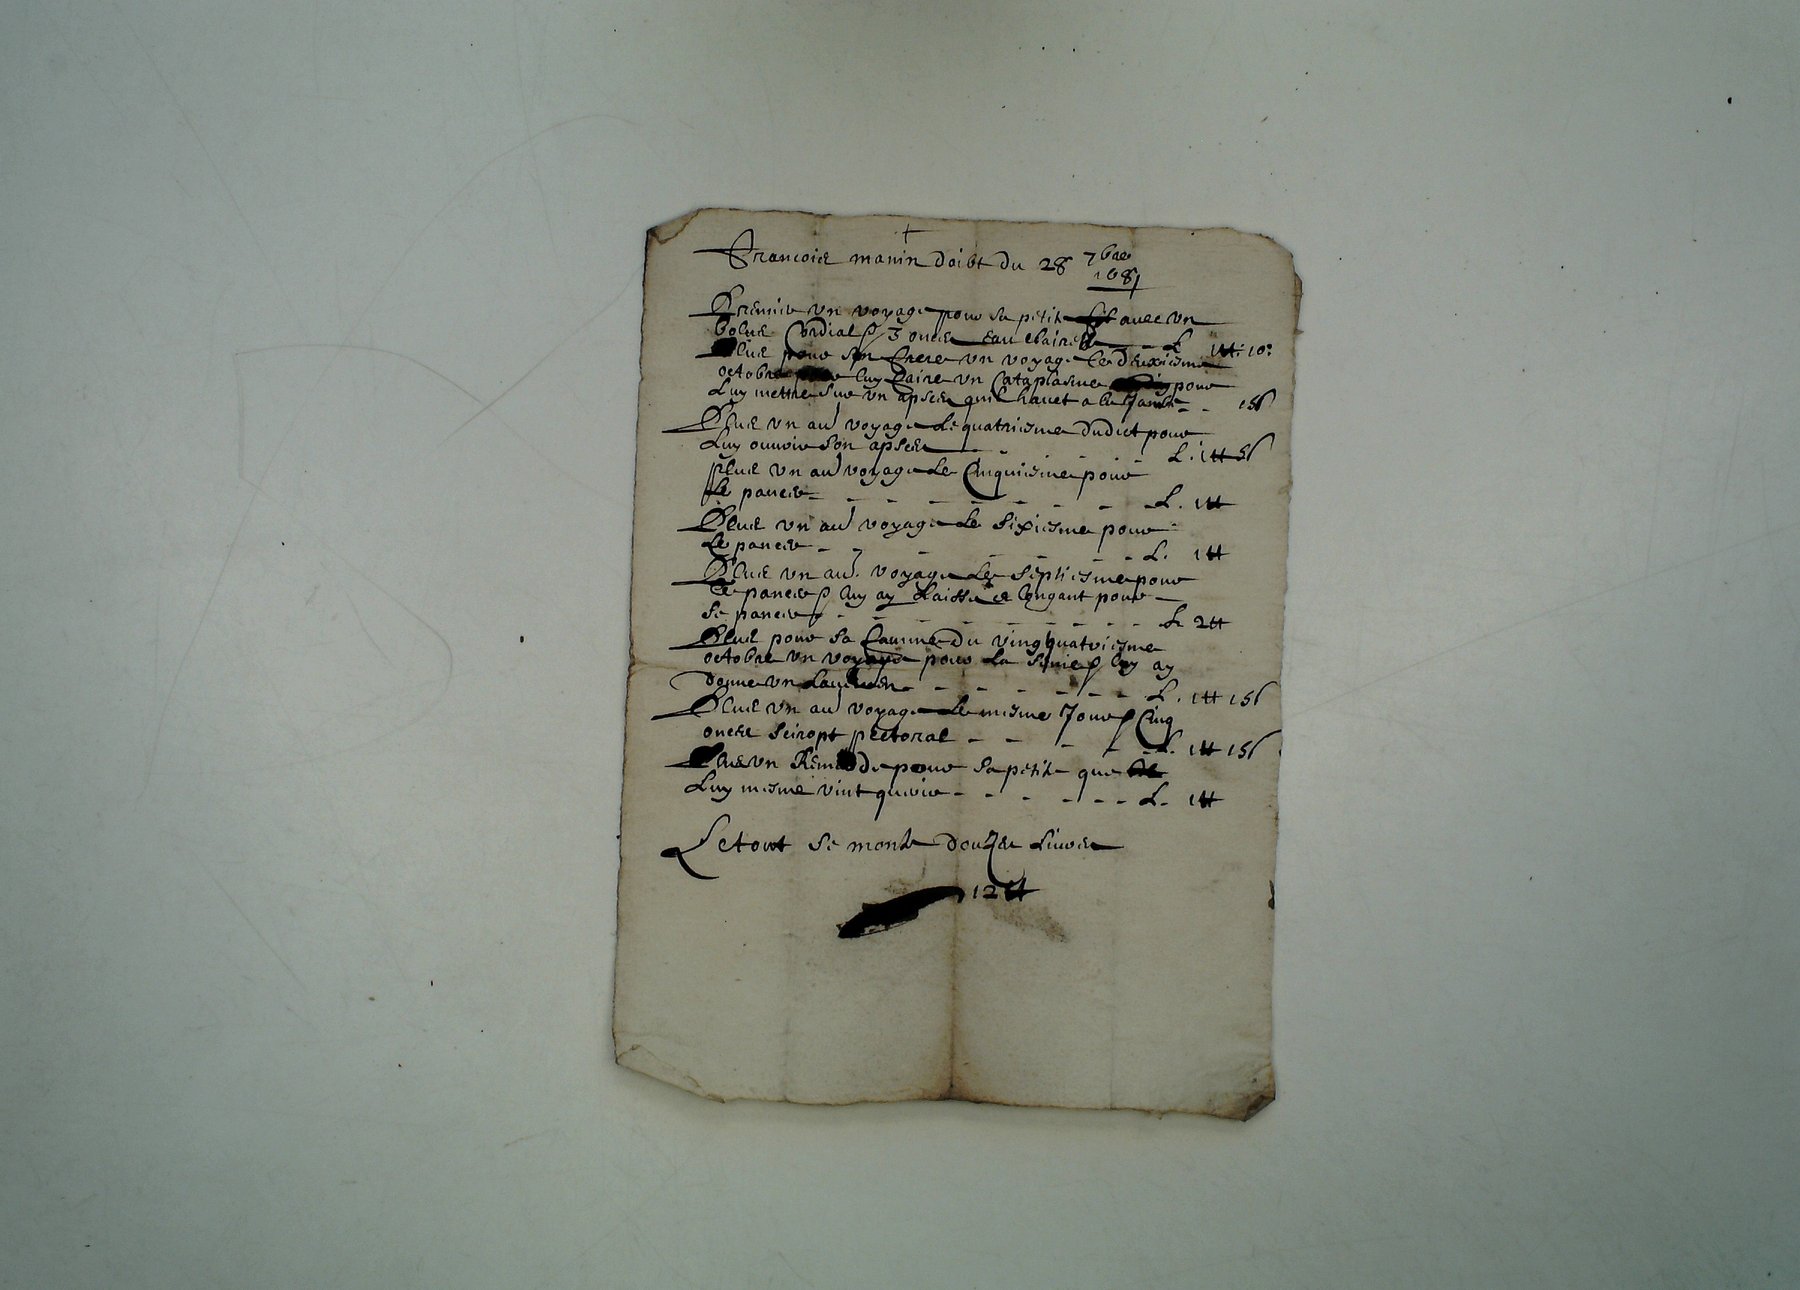 +
Francois manin doibt du 28 7bre
1681
Premier vn voyage pour sa petite avec vn
bolus Cordial & 3 onces eau claire L 1tt: 10s
plus pour son frere vn voyage le deuxiesme
octobre luy faire vn Cataplasme pour
Luy mettre sur vn apsces quil havet a la Jambe - - 15s
Plus vn aut voyage Le quatriesme dudict pour
Luy ouvrir son apsces L. 1tt 5s
plus vn aut voyage Le Cinquiesme pour
Le pancer - - - - - - L. 1tt
Plus vn aut voyage Le Sixiesme pour
Le pancer - - - - - - L. 1tt
Plus vn aut. voyage Le Septiesme pour
Le pancer & luy ay Laisse de longant pour
se pancer - - - - - - L. 2tt
Plus pour sa famme du vingquatriesme
octobre vn voyage pour La & luy ay
donne vn Lavemen - - - - - - L. 1tt 15s
Plus vn aut voyage Le mesme Jour & Cinq
onces Seiropt pectoral - - - - L. 1tt 15s
plus vn Remede pour Sa petite que
Luy mesme vint querir - - - - - - L. 1tt
Le tout se monte douze Livres
12tt